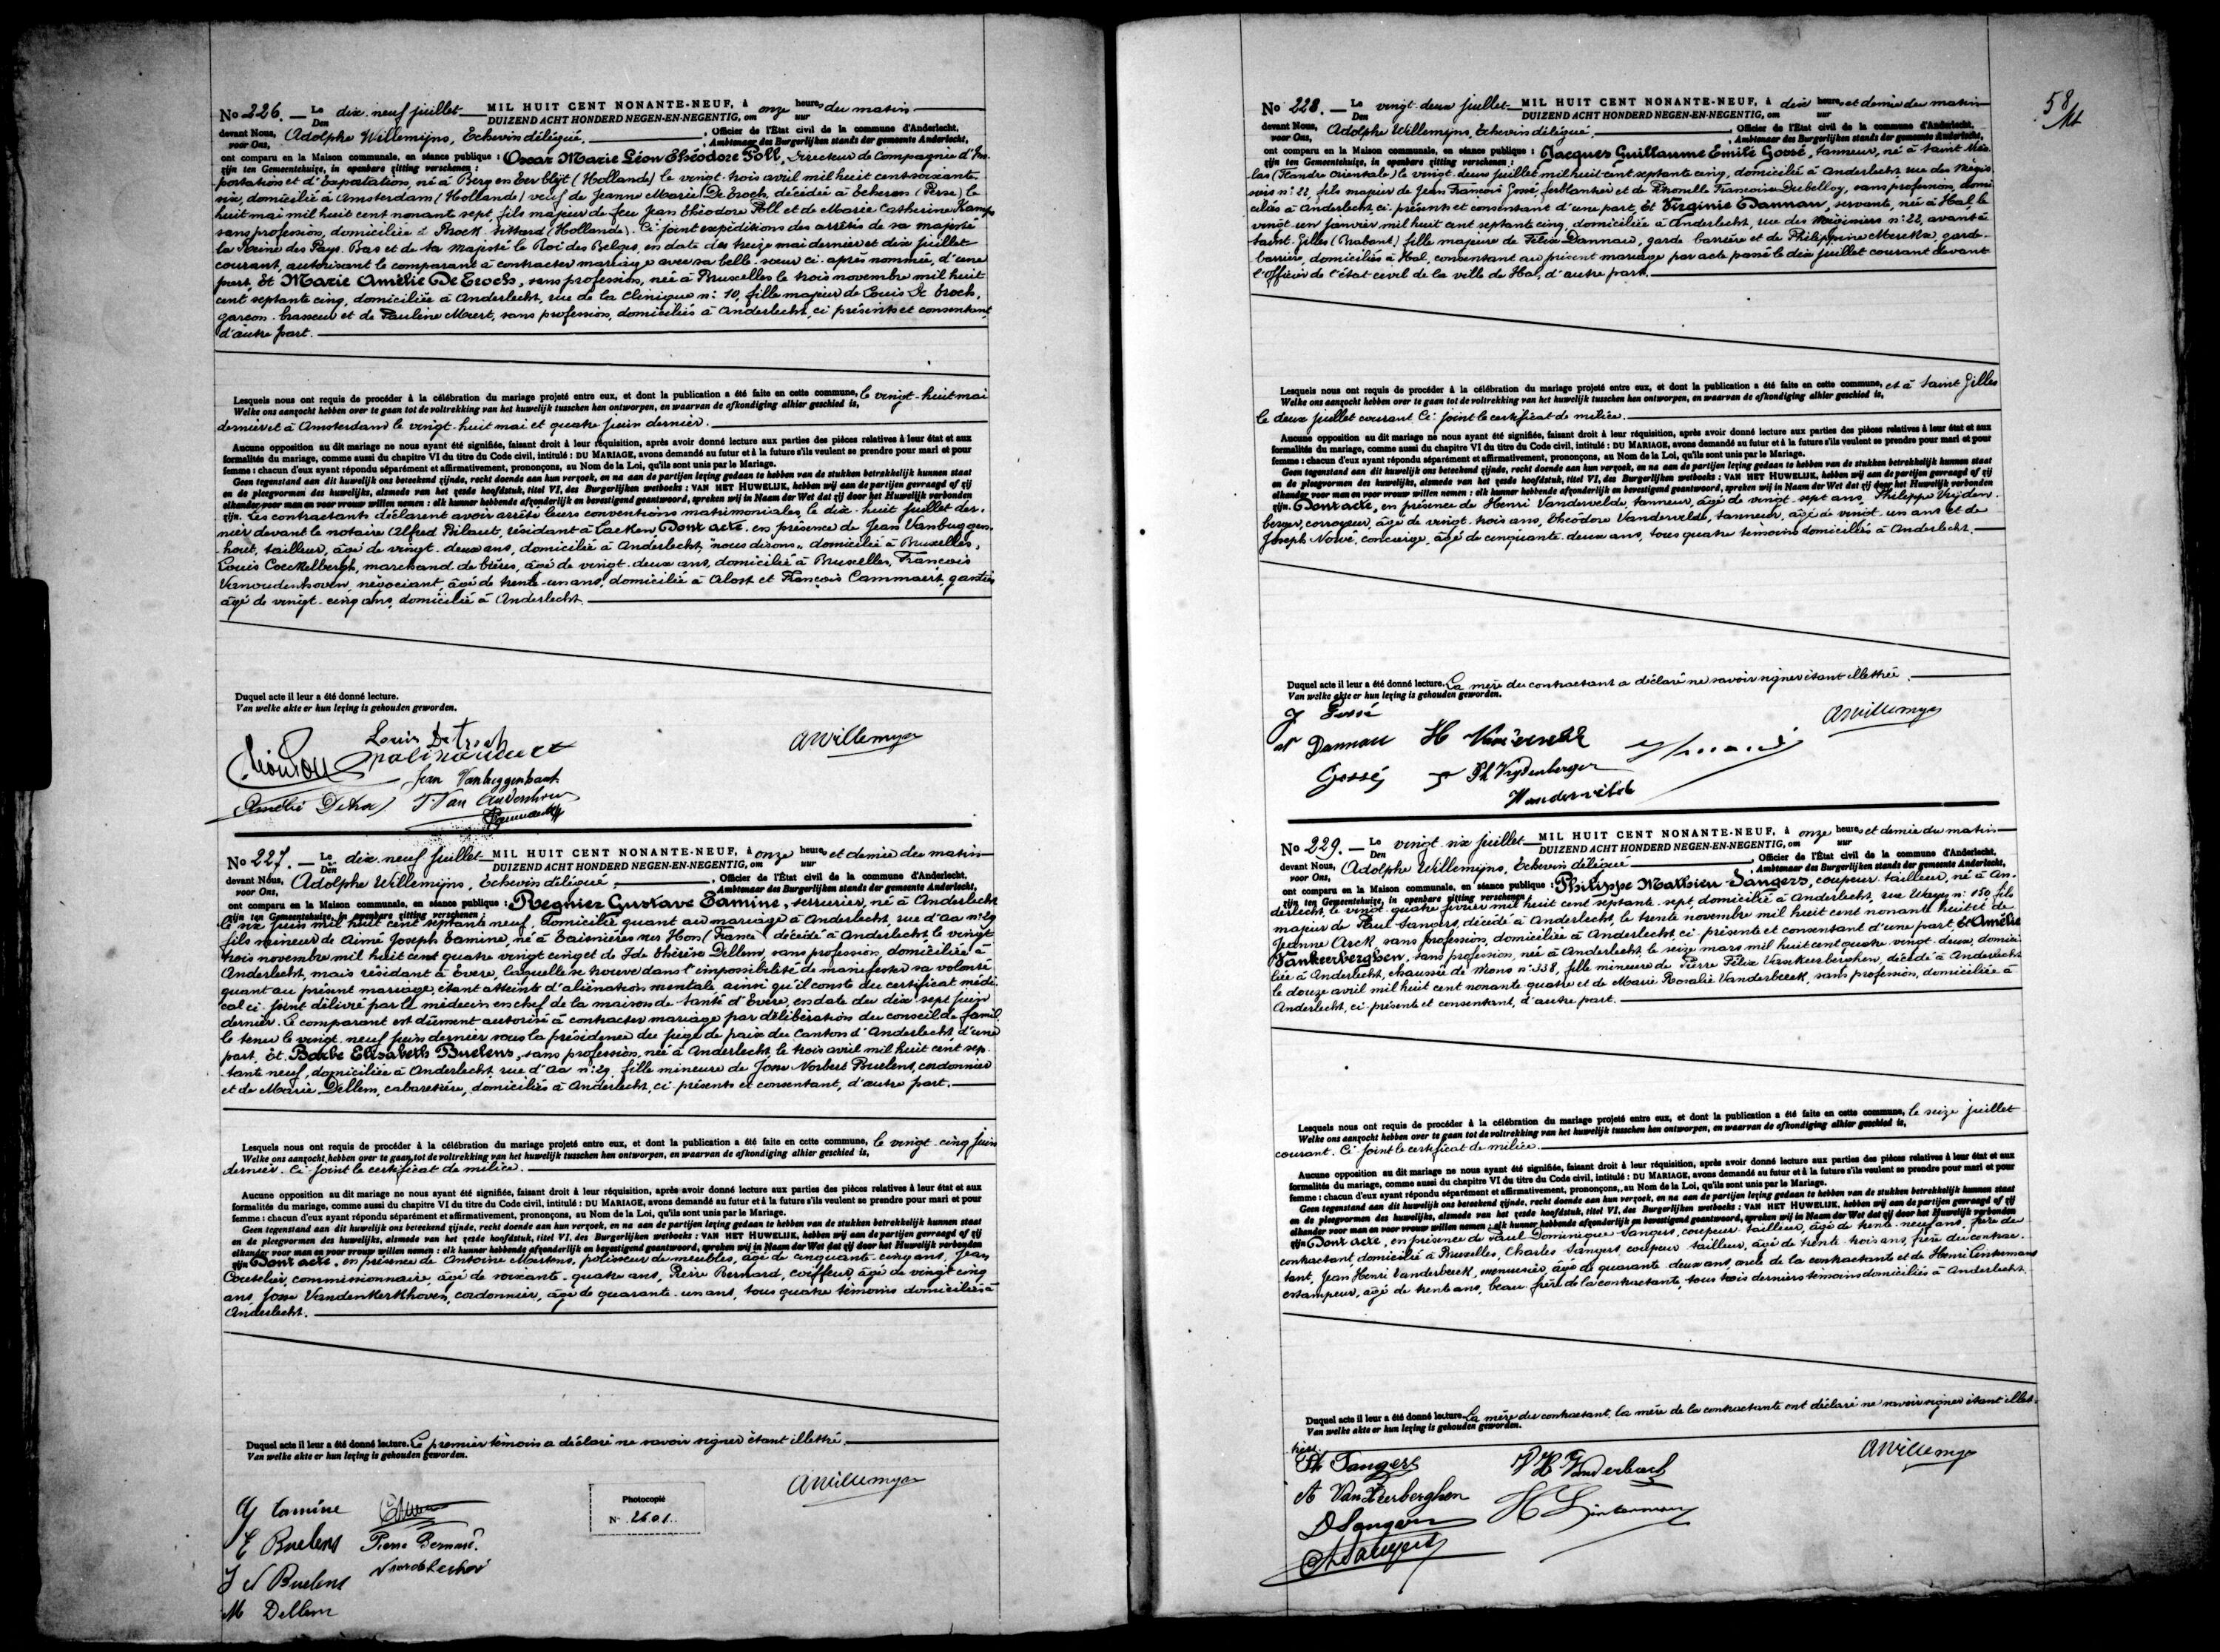 No 226. — Le dix-neuf juillet MIL HUIT CENT NONANTE-NEUF, à onze heures du matin
Den DUIZEND ACHT HONDERD NEGEN-EN-NEGENTIG, om uur
devant Nous, Adolphe Willemyns, Echevin délégué, Officier de l'État civil de la commune d'Anderlecht,
voor Ons, Ambtenaar des Burgerlijken stands der gemeente Anderlecht,
ont comparu en la Maison communale, en séance publique : Oscar Marie Léon Théodore Poll, Directeur de Compagnie d'Im-
zijn ten Gemeentehuize, in openbare zitting verschenen :
portation et d'Exportation, né à Berg en Terblijt (Hollande) le vingt-trois avril mil huit cent soixante
six, domicilié à Amsterdam (Hollande) veuf de Jeanne Marie De Troch, décédée à Teheran (Perse) le
huit mai mil huit cent nonante sept, fils majeur de feu Jean Théodore Poll et de Marie Catherine Kamps
sans profession, domiciliée à Broek-Sittard (Hollande). Ci-joint expéditions des arrêtés de sa majesté
la Reine des Pays-Bas et de sa Majesté le Roi des Belges, en date des treize mai dernier et dix juillet
courant, autorisant le comparant à contracter mariage avec sa belle-sœur ci-après nommée, d'une
part, Et Marie Amélie De Troch, sans profession, née à Bruxelles le trois novembre mil huit
cent septante cinq, domiciliée à Anderlecht, rue de la Clinique n: 10, fille majeure de Louis De Troch,
garçon-brasseur et de Pauline Maert, sans profession, domiciliés à Anderlecht, ci-présents et consentant,
d'autre part.
Lesquels nous ont requis de procéder à la célébration du mariage projeté entre eux, et dont la publication a été faite en cette commune, le vingt-huit mai
Welke ons aanzocht hebben over te gaan tot de voltrekking van het huwelijk tusschen hen ontworpen, en waarvan de afkondiging alhier geschied is,
dernier et à Amsterdam le vingt-huit mai et quatre juin dernier.
Aucune opposition au dit mariage ne nous ayant été signifiée, faisant droit à leur réquisition, après avoir donné lecture aux parties des pièces relatives à leur état et aux
formalités du mariage, comme aussi du chapitre VI du titre du Code civil, intitulé : DU MARIAGE, avons demandé au futur et à la future s'ils veulent se prendre pour mari et pour
femme : chacun d'eux ayant répondu séparément et affirmativement, prononçons, au Nom de la Loi, qu'ils sont unis par le Mariage.
Geen tegenstand aan dit huwelijk ons beteekend zijnde, recht doende aan hun verzoek, en na aan de partijen lezing gedaan te hebben van de stukken betrekkelijk hunnen staat
en de pleegvormen des huwelijks, alsmede van het zesde hoofdstuk, titel VI, des Burgerlijken wetboeks : VAN HET HUWELIJK, hebben wij aan de partijen gevraagd of zij
elkander voor man en voor vrouw willen nemen : elk hunner hebbende afzonderlijk en bevestigend geantwoord, spreken wij in Naam der Wet dat zij door het Huwelijk verbonden
zijn. Les contractants déclarent avoir arrêté leurs conventions matrimoniales, le dix-huit juillet der-
nier devant le notaire Alfred Pilaut, résidant à Laeken, Dont acte, en présence de Jean Vanbuggen-
hout, tailleur, âgé de vingt-deux ans, domicilié à Anderlecht, "nous disons" domicilié à Bruxelles,
Louis Coeckelbergh, marchand de bières, âgé de vingt-deux ans, domicilié à Bruxelles, François
Vanoudenhoven, négociant, âgé de trente-un ans, domicilié à Alost et François Cammaert, gantier
âgé de vingt-cinq ans, domicilié à Anderlecht.
Duquel acte il leur a été donné lecture.
Van welke akte er hun lezing is gehouden geworden.
Louis De Troch
AWillemyns
Jean Vanbuggenhout
Amélie De Troch F. Van Oudenhoven
No 227. — Le dix-neuf juillet MIL HUIT CENT NONANTE-NEUF, à onze heures et demie du matin
Den DUIZEND ACHT HONDERD NEGEN-EN-NEGENTIG, om uur
devant Nous, Adolphe Willemyns, Echevin délégué, Officier de l'État civil de la commune d'Anderlecht,
voor Ons, Ambtenaar des Burgerlijken stands der gemeente Anderlecht,
ont comparu en la Maison communale, en séance publique : Regnier Gustave Tamine, serrurier, né à Anderlecht
zijn ten Gemeentehuize, in openbare zitting verschenen :
le six juin mil huit cent septante neuf, domicilié quant au mariage à Anderlecht, rue d'Aa n: 29
fils mineur de Aimé Joseph Tamine, né à Taisnières sur Hon (France) décédé à Anderlecht le vingt
trois novembre mil huit cent quatre vingt cinq et de Ide Thérèse Dellem, sans profession, domiciliée à
Anderlecht, mais résidant à Evere, laquelle se trouve dans l'impossibilité de manifester sa volonté
quant au présent mariage, étant atteinte d'aliénation mentale ainsi qu'il conste du certificat médi-
cal ci-joint délivré par le médecin en chef de la maison de Santé d'Evere, en date du dix-sept juin
dernier. Le comparant est dûment autorisé à contracter mariage par délibération du conseil de famil-
le tenu le vingt-neuf juin dernier sous la présidence du juge de paix du Canton d'Anderlecht, d'une
part, Et Barbe Elisabeth Buelens, sans profession, née à Anderlecht le trois avril mil huit cent sep-
tante neuf, domiciliée à Anderlecht rue d'Aa n: 29 fille mineure de Josse Norbert Buelens, cordonnier
et de Marie Dellem, cabaretière, domiciliés à Anderlecht, ci-présents et consentant, d'autre part.
Lesquels nous ont requis de procéder à la célébration du mariage projeté entre eux, et dont la publication a été faite en cette commune, le vingt-cinq juin
Welke ons aanzocht hebben over te gaan tot de voltrekking van het huwelijk tusschen hen ontworpen, en waarvan de afkondiging alhier geschied is,
dernier. Ci-joint le certificat de milice.
Aucune opposition au dit mariage ne nous ayant été signifiée, faisant droit à leur réquisition, après avoir donné lecture aux parties des pièces relatives à leur état et aux
formalités du mariage, comme aussi du chapitre VI du titre du Code civil, intitulé : DU MARIAGE, avons demandé au futur et à la future s'ils veulent se prendre pour mari et pour
femme : chacun d'eux ayant répondu séparément et affirmativement, prononçons, au Nom de la Loi, qu'ils sont unis par le Mariage.
Geen tegenstand aan dit huwelijk ons beteekend zijnde, recht doende aan hun verzoek, en na aan de partijen lezing gedaan te hebben van de stukken betrekkelijk hunnen staat
en de pleegvormen des huwelijks, alsmede van het zesde hoofdstuk, titel VI, des Burgerlijken wetboeks : VAN HET HUWELIJK, hebben wij aan de partijen gevraagd of zij
elkander voor man en voor vrouw willen nemen : elk hunner hebbende afzonderlijk en bevestigend geantwoord, spreken wij in Naam der Wet dat zij door het Huwelijk verbonden
zijn. Dont acte, en présence de Antoine Martens, polisseur de meubles, âgé de cinquante-cinq ans, Jean
Coutelier, commissionnaire, âgé de soixante-quatre ans, Pierre Bernard, coiffeur, âgé de vingt cinq
ans, Josse Vandenkerkhoven, cordonnier, âgé de quarante-un ans, tous quatre témoins domiciliés à
Anderlecht.
Duquel acte il leur a été donné lecture. Le premier témoin a déclaré ne savoir signer étant illettré.
Van welke akte er hun lezing is gehouden geworden.
AWillemyns
G Tamine
Photocopié
N° 2601
E Buelens Pierre Bernard
J N Buelens
M Dellem
58
No 228. — Le vingt-deux juillet MIL HUIT CENT NONANTE-NEUF, à dix heures et demie du matin
Den DUIZEND ACHT HONDERD NEGEN-EN-NEGENTIG, om uur
devant Nous, Adolphe Willemyns, Echevin délégué, Officier de l'État civil de la commune d'Anderlecht,
voor Ons, Ambtenaar des Burgerlijken stands der gemeente Anderlecht,
ont comparu en la Maison communale, en séance publique : Jacques Guillaume Emile Gossé, tanneur, né à Saint Nico-
zijn ten Gemeentehuize, in openbare zitting verschenen :
las (Flandre Orientale) le vingt-deux juillet mil huit cent septante cinq, domicilié à Anderlecht rue des Mégis-
siers n: 22, fils majeur de Jean François Gossé, ferblantier et de Pétronille Françoise Debelloy, sans profession, domi-
ciliés à Anderlecht, ci-présents et consentant d'une part, Et Virginie Dannau, servante, née à Hal, le
vingt-un janvier mil huit cent septante cinq, domiciliée à Anderlecht, rue des Mégissiers n: 22, avant à
Saint-Gilles (Brabant) fille majeure de Félix Dannau, garde-barrière et de Philippine Merckx, garde-
barrière, domiciliés à Hal, consentant au présent mariage par acte passé le dix juillet courant devant
l'Officier de l'état civil de la ville de Hal, d'autre part.
Lesquels nous ont requis de procéder à la célébration du mariage projeté entre eux, et dont la publication a été faite en cette commune, et à Saint Gilles
Welke ons aanzocht hebben over te gaan tot de voltrekking van het huwelijk tusschen hen ontworpen, en waarvan de afkondiging alhier geschied is,
le deux juillet courant. Ci-joint le certificat de milice.
Aucune opposition au dit mariage ne nous ayant été signifiée, faisant droit à leur réquisition, après avoir donné lecture aux parties des pièces relatives à leur état et aux
formalités du mariage, comme aussi du chapitre VI du titre du Code civil, intitulé : DU MARIAGE, avons demandé au futur et à la future s'ils veulent se prendre pour mari et pour
femme : chacun d'eux ayant répondu séparément et affirmativement, prononçons, au Nom de la Loi, qu'ils sont unis par le Mariage.
Geen tegenstand aan dit huwelijk ons beteekend zijnde, recht doende aan hun verzoek, en na aan de partijen lezing gedaan te hebben van de stukken betrekkelijk hunnen staat
en de pleegvormen des huwelijks, alsmede van het zesde hoofdstuk, titel VI, des Burgerlijken wetboeks : VAN HET HUWELIJK, hebben wij aan de partijen gevraagd of zij
elkander voor man en voor vrouw willen nemen : elk hunner hebbende afzonderlijk en bevestigend geantwoord, spreken wij in Naam der Wet dat zij door het Huwelijk verbonden
zijn. Dont acte, en présence de Henri Vandervelde, tanneur, âgé de vingt-sept ans, Philippe Vrijden-
berger, corroyeur, âgé de vingt-trois ans, Théodore Vandervelde, tanneur, âgé de vingt-un ans et de
Joseph Nowé, concierge, âgé de cinquante-deux ans, tous quatre témoins domiciliés à Anderlecht.
Duquel acte il leur a été donné lecture. La mère du contractant a déclaré ne savoir signer étant illettrée.
Van welke akte er hun lezing is gehouden geworden.
J Gossé
AWillemyns
V Dannau H Vandervelde
Gossé Ph Vrydenberger
Vandervelde
No 229. — Le vingt-six juillet MIL HUIT CENT NONANTE-NEUF, à onze heures et demie du matin
Den DUIZEND ACHT HONDERD NEGEN-EN-NEGENTIG, om uur
devant Nous, Adolphe Willemyns, Echevin délégué Officier de l'État civil de la commune d'Anderlecht,
voor Ons, Ambtenaar des Burgerlijken stands der gemeente Anderlecht,
ont comparu en la Maison communale, en séance publique : Philippe Mathieu Sangers, coupeur-tailleur, né à An-
zijn ten Gemeentehuize, in openbare zitting verschenen :
derlecht, le vingt-quatre février mil huit cent septante-sept, domicilié à Anderlecht, rue Wayez n: 150, fils
majeur de Paul Sangers, décédé à Anderlecht, le trente novembre mil huit cent nonante huit et de
Jeanne Arck, sans profession, domiciliée à Anderlecht, ci-présente et consentant d'une part, Et Amélie
Vankeerberghen, sans profession, née à Anderlecht, le seize mars mil huit cent quatre-vingt-deux, domici-
liée à Anderlecht, chaussée de Mons n: 338, fille mineure de Pierre Félix Vankeerberghen, décédé à Anderlecht
le douze avril mil huit cent nonante-quatre et de Marie Rosalie Vanderbeeck, sans profession, domiciliée à
Anderlecht, ci-présente et consentant, d'autre part.
Lesquels nous ont requis de procéder à la célébration du mariage projeté entre eux, et dont la publication a été faite en cette commune, le seize juillet
Welke ons aanzocht hebben over te gaan tot de voltrekking van het huwelijk tusschen hen ontworpen, en waarvan de afkondiging alhier geschied is,
courant. Ci-joint le certificat de milice.
Aucune opposition au dit mariage ne nous ayant été signifiée, faisant droit à leur réquisition, après avoir donné lecture aux parties des pièces relatives à leur état et aux
formalités du mariage, comme aussi du chapitre VI du titre du Code civil, intitulé : DU MARIAGE, avons demandé au futur et à la future s'ils veulent se prendre pour mari et pour
femme : chacun d'eux ayant répondu séparément et affirmativement, prononçons, au Nom de la Loi, qu'ils sont unis par le Mariage.
Geen tegenstand aan dit huwelijk ons beteekend zijnde, recht doende aan hun verzoek, en na aan de partijen lezing gedaan te hebben van de stukken betrekkelijk hunnen staat
en de pleegvormen des huwelijks, alsmede van het zesde hoofdstuk, titel VI, des Burgerlijken wetboeks : VAN HET HUWELIJK, hebben wij aan de partijen gevraagd of zij
elkander voor man en voor vrouw willen nemen : elk hunner hebbende afzonderlijk en bevestigend geantwoord, spreken wij in Naam der Wet dat zij door het Huwelijk verbonden
zijn. Dont acte, en présence de Paul Dominique Sangers, coupeur-tailleur, âgé de trente-neuf ans, frère du
contractant, domicilié à Bruxelles, Charles Sangers, coupeur-tailleur, âgé de trente-trois ans, frère du contrac-
tant, Jean Henri Vanderbeeck, menuisier, âgé de quarante-deux ans, oncle de la contractante et de Henri Lintermans
estampeur, âgé de trente ans, beau-frère de la contractante, tous trois derniers témoins domiciliés à Anderlecht.
Duquel acte il leur a été donné lecture. La mère du contractant, la mère de la contractante ont déclaré ne savoir signer étant illet-
Van welke akte er hun lezing is gehouden geworden.
trées.
Ph Sangers Vanderbeeck AWillemyns
A Vankeerberghen
D Sangers H Lintermans
Ch Sangers